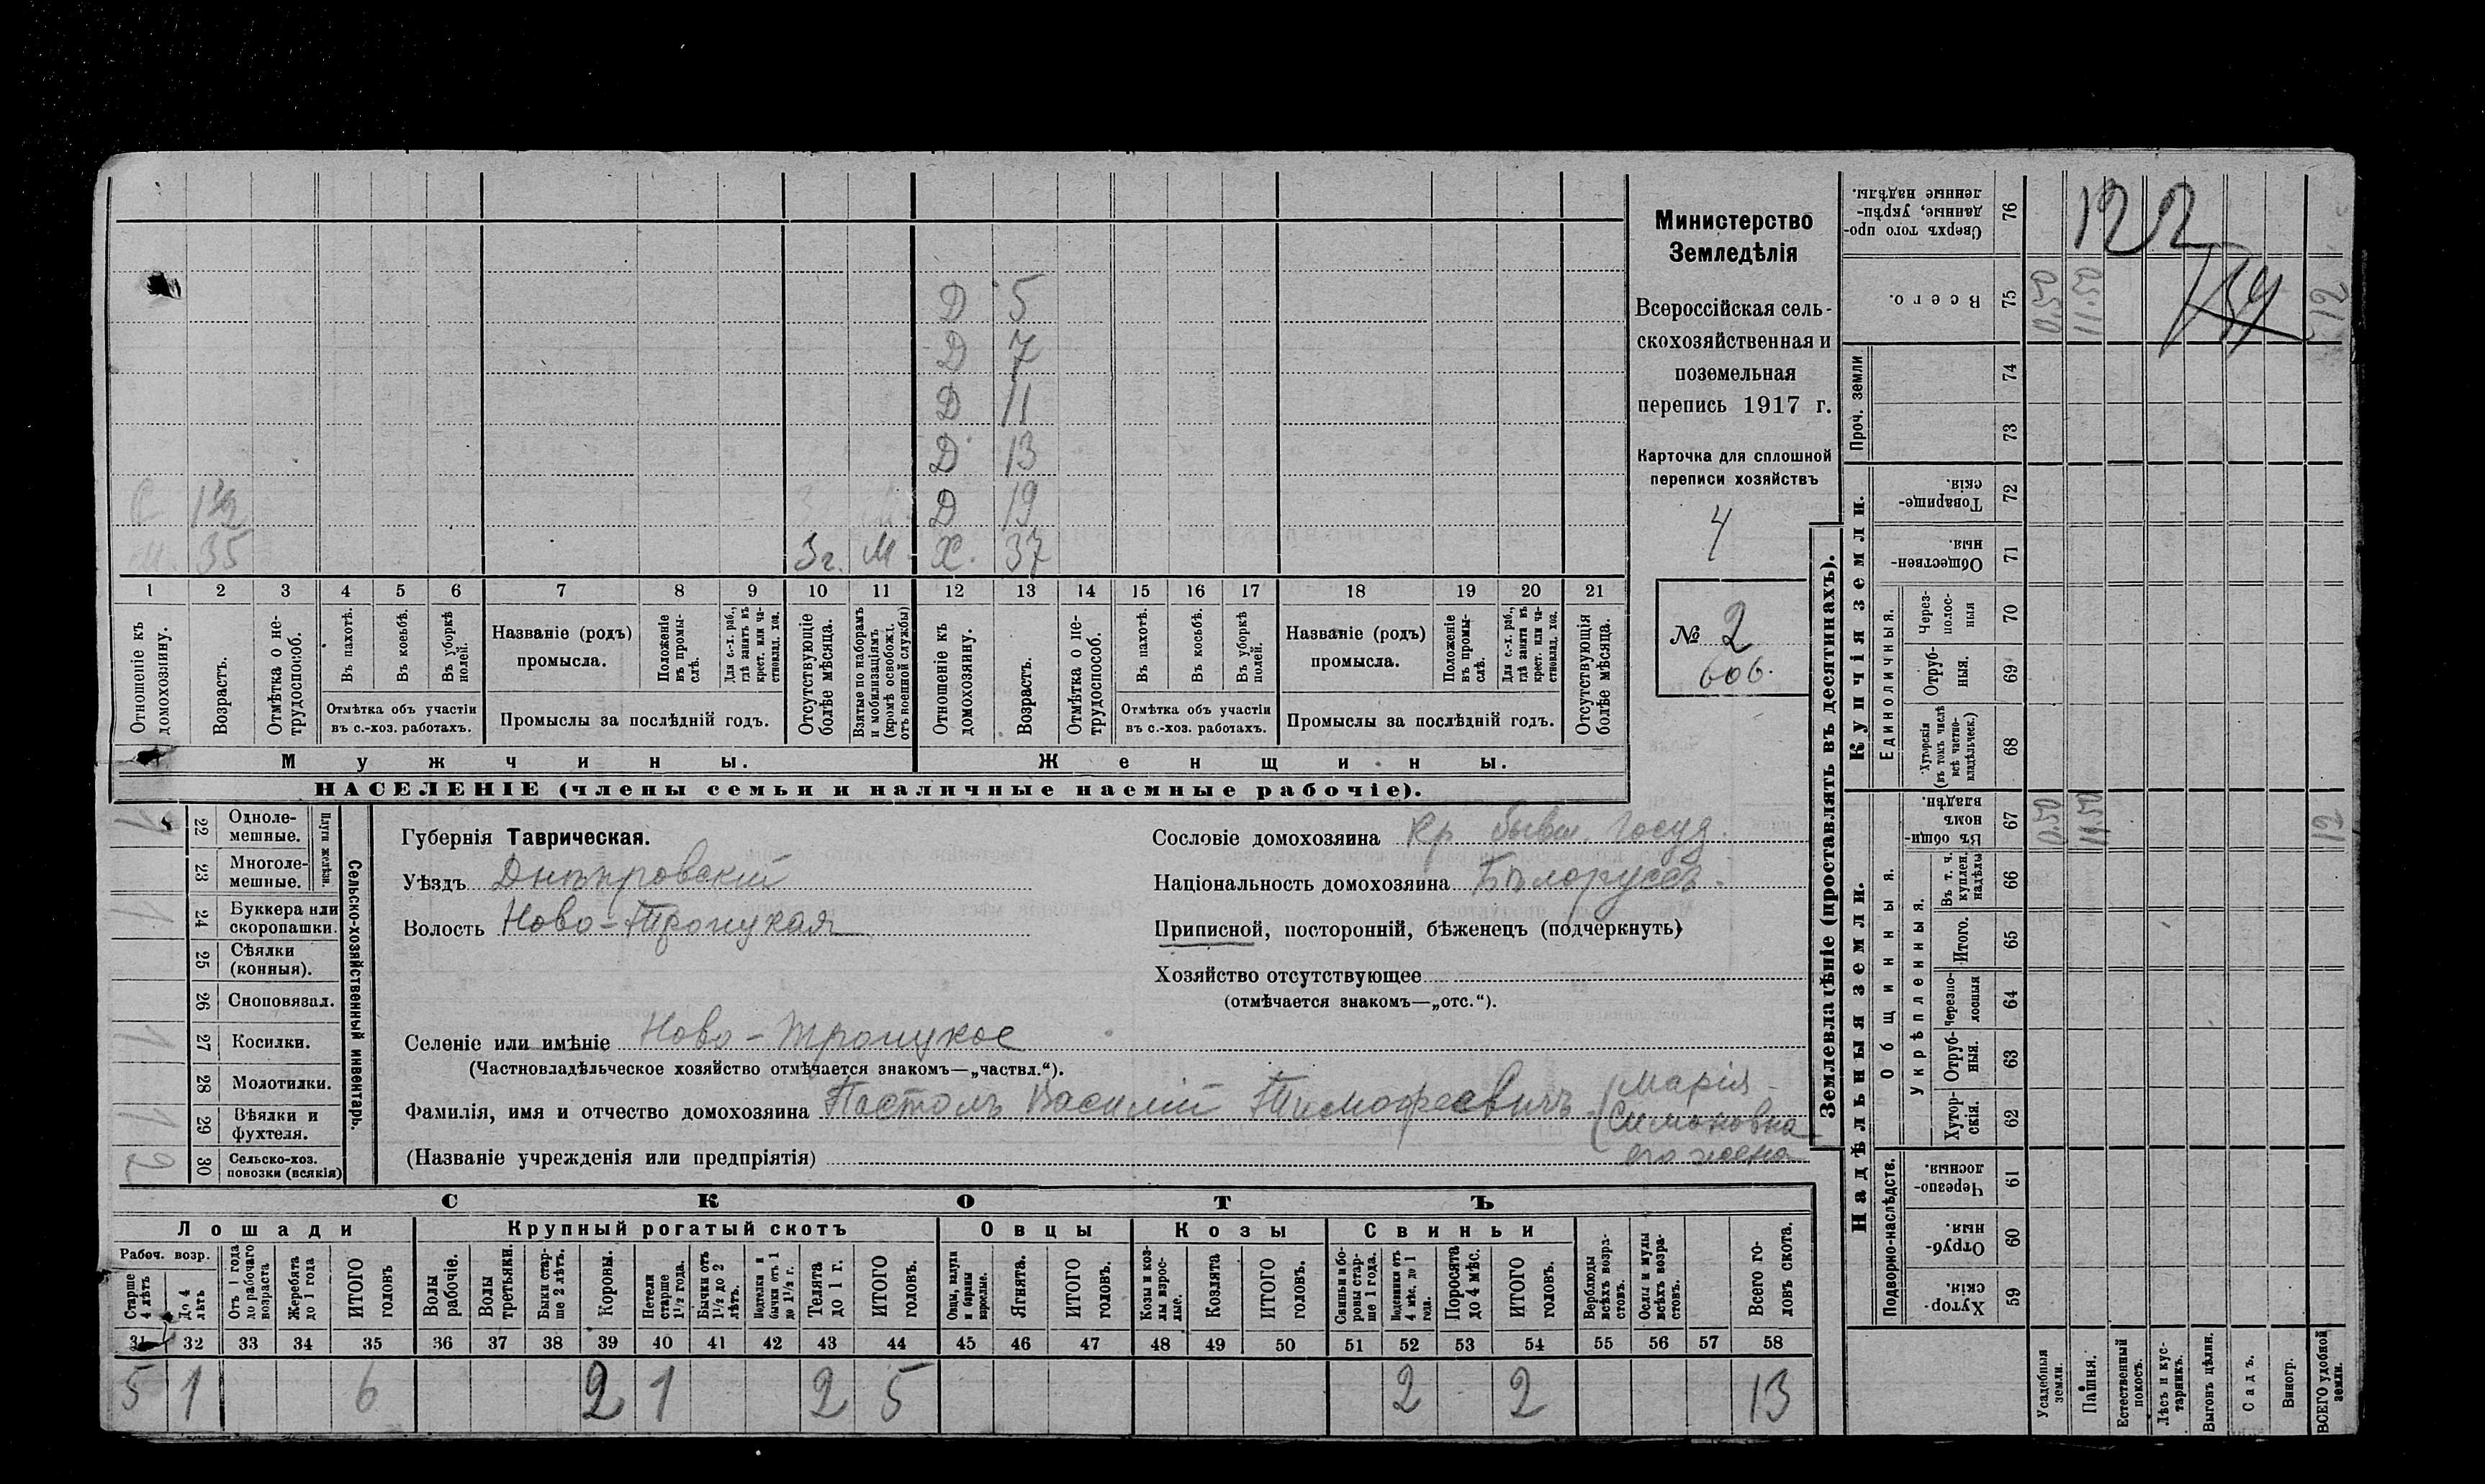 Д 5
Д 7
Д 11
Д 13
С 1½ Д 19
М. 35 3 г. М Х. 37
1 2 3 4 5 6 7 8 9 10 11 12 13 14 15 16 17 18 19 20 21
Отношеніе къ домохозяину.
Возрастъ.
Отмѣтка о нетрудоспособ.
Въ пахотѣ.
Въ косьбѣ.
Въ уборкѣ полей.
Отмѣтка объ участіи
въ с.-хоз. работахъ.
Названіе (родъ)
промысла.
Положеніе въ промыслѣ.
Для с.-х. раб., гдѣ занятъ въ крест. или частновлад. хоз.
Промыслы за послѣдній годъ.
Отсутствующіе болѣе мѣсяца.
Взятые по наборамъ и мобилизаціямъ (кромѣ освобожд. отъ военной службы)
Отношеніе къ домохозяину.
Возрастъ.
Отмѣтка о нетрудоспособ.
Въ пахотѣ.
Въ косьбѣ.
Въ уборкѣ полей.
Отмѣтка объ участіи
въ с.-хоз. работахъ.
Названіе (родъ)
промысла.
Положеніе въ промыслѣ.
Для с.-х. раб., гдѣ заняты въ крест. или частновлад. хоз.
Промыслы за послѣдній годъ.
Отсутствующія болѣе мѣсяца.
Мужчины. Женщины.
НАСЕЛЕНІЕ (члены семьи и наличные наемные рабочіе).
Министерство
Земледѣлія
Всероссійская сель-
скохозяйственная и
поземельная
перепись 1917 г.
Карточка для сплошной
переписи хозяйствъ
4
№ 2
606.
Сельско-хозяйственный инвентарь.
Плуги желѣзн.
1 22 Одноле-
мешные.
23 Многоле-
мешные.
1 24 Буккера или
скоропашки.
25 Сѣялки
(конныя).
26 Сноповязал.
1 27 Косилки.
28 Молотилки.
1 29 Вѣялки и
фухтеля.
2 30 Сельско-хоз.
повозки (всякія)
Губернія Таврическая.
Уѣздъ Днѣпровскій
Волость Ново-Троицкая
Сословіе домохозяина Кр. бывш. госуд.
Національность домохозяина Бѣлоруссъ.
Приписной, посторонній, бѣженецъ (подчеркнуть)
Хозяйство отсутствующее
(отмѣчается знакомъ—„отс.“).
Селеніе или имѣніе Ново-Троицкое
(Частновладѣльческое хозяйство отмѣчается знакомъ—„частвл.“).
Фамилія, имя и отчество домохозяина Постолъ Василій Тимофеевичъ (Марія
Симоновна
его жена
(Названіе учрежденія или предпріятія)
СКОТЪ
Лошади Крупный рогатый скотъ Овцы Козы Свиньи
Рабоч. возр.
Старше 4 лѣтъ
До 4 лѣтъ
Отъ 1 года до рабочаго возраста
Жеребята до 1 года
ИТОГО головъ
Волы рабочіе.
Волы третьяки.
Быки старше 2 лѣтъ.
Коровы.
Нетели старше 1½ года.
Бычки отъ 1½ до 2 лѣтъ.
Подтелки и бычки отъ 1 до 1½ г.
Телята до 1 г.
ИТОГО головъ.
Овцы, валухи и бараны взрослые.
Ягнята.
ИТОГО головъ.
Козы и козлы взрослые.
Козлята
ИТОГО головъ.
Свиньи и боровы старше 1 года.
Подсвинки отъ 4 мѣс. до 1 года.
Поросята до 4 мѣс.
ИТОГО головъ.
Верблюды всѣхъ возрастовъ.
Ослы и мулы всѣхъ возрастовъ.
Всего головъ скота.
31 32 33 34 35 36 37 38 39 40 41 42 43 44 45 46 47 48 49 50 51 52 53 54 55 56 57 58
5 1 6 2 1 2 5 2 2 13
Землевладѣніе (проставлять въ десятинахъ).
Надѣльныя земли. Купчія земли. Проч. земли
Подворно-наслѣдств.
Общинныя.
Укрѣпленныя.
Единоличныя.
Сверхъ того проданные, укрѣпленные надѣлы. 76
Всего. 75 0.50 11.50 12
74
73
Товарищескія. 72
Общественныя. 71
Черезполосныя 70
Отрубныя. 69
Хуторскія (въ томъ числѣ всѣ частновладѣльческ.) 68
Въ общинномъ владѣн. 67 0.50 11.50 12
Въ т. ч. куплен. надѣлы 66
Итого. 65
Черезполосныя 64
Отрубныя. 63
Хуторскія. 62
Черезполосныя. 61
Отрубныя. 60
Хуторскія. 59
Усадебныя земли.
Пашня.
Естественный покосъ.
Лѣсъ и кустарникъ.
Выгонъ цѣлин.
Садъ.
Виногр.
ВСЕГО удобной земли.
122